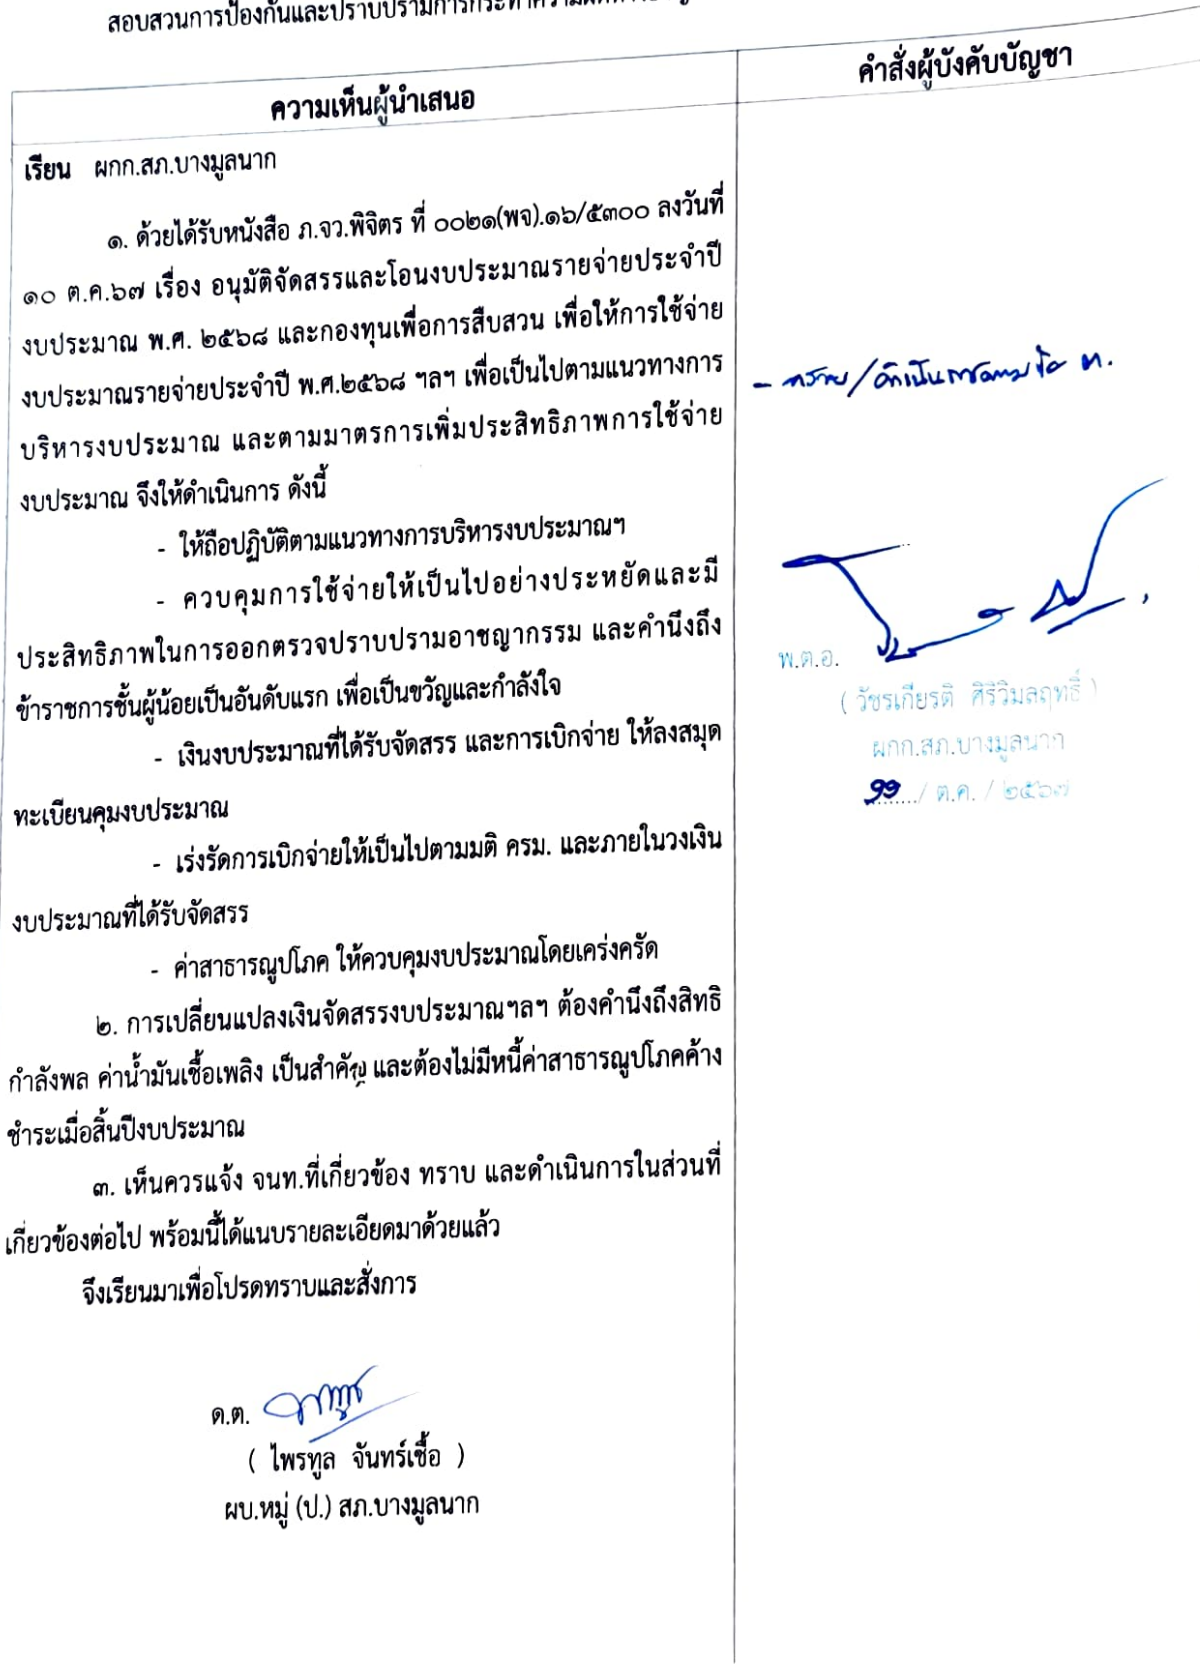 สอบสวนการป้องกันและปราบปรามการกระทำความผิด
ความเห็นผู้นำเสนอ
คำสั่งผู้บังคับบัญชา
เรียน ผกก.สภ.บางมูลนาก
๑. ด้วยได้รับหนังสือ ภ.จว.พิจิตร ที่ ๐๐๒๑(พจ).๑๖/๕๓๐๐ ลงวันที่
๑๐ ต.ค.๖๗ เรื่อง อนุมัติจัดสรรและโอนงบประมาณรายจ่ายประจำปี
งบประมาณ พ.ศ. ๒๕๖๘ และกองทุนเพื่อการสืบสวน เพื่อให้การใช้จ่าย
งบประมาณรายจ่ายประจำปี พ.ศ.๒๕๖๘ ฯลฯ เพื่อเป็นไปตามแนวทางการ
บริหารงบประมาณ และตามมาตรการเพิ่มประสิทธิภาพการใช้จ่าย
งบประมาณ จึงให้ดำเนินการ ดังนี้
- ให้ถือปฏิบัติตามแนวทางการบริหารงบประมาณฯ
- ควบคุมการใช้จ่ายให้เป็นไปอย่างประหยัดและมี
ประสิทธิภาพในการออกตรวจปราบปรามอาชญากรรม และคำนึงถึง
ข้าราชการชั้นผู้น้อยเป็นอันดับแรก เพื่อเป็นขวัญและกำลังใจ
- เงินงบประมาณที่ได้รับจัดสรร และการเบิกจ่าย ให้ลงสมุด
ทะเบียนคุมงบประมาณ
- เร่งรัดการเบิกจ่ายให้เป็นไปตามมติ ครม. และภายในวงเงิน
งบประมาณที่ได้รับจัดสรร
- ค่าสาธารณูปโภค ให้ควบคุมงบประมาณโดยเคร่งครัด
๒. การเปลี่ยนแปลงเงินจัดสรรงบประมาณฯลฯ ต้องคำนึงถึงสิทธิ
กำลังพล ค่าน้ำมันเชื้อเพลิง เป็นสำคัญ และต้องไม่มีหนี้ค่าสาธารณูปโภคค้าง
ชำระเมื่อสิ้นปีงบประมาณ
๓. เห็นควรแจ้ง จนท.ที่เกี่ยวข้อง ทราบ และดำเนินการในส่วนที่
เกี่ยวข้องต่อไป พร้อมนี้ได้แนบรายละเอียดมาด้วยแล้ว
จึงเรียนมาเพื่อโปรดทราบและสั่งการ
ด.ต.
( ไพรทูล จันทร์เชื้อ )
ผบ.หมู่ (ป.) สภ.บางมูลนาก
- ทราบ/ดำเนินการตามข้อ ๓.
พ.ต.อ.
( วัชรเกียรติ ศิริวิมลฤทธิ์ )
ผกก.สภ.บางมูลนาก
๑๑ / ต.ค. / ๒๕๖๗